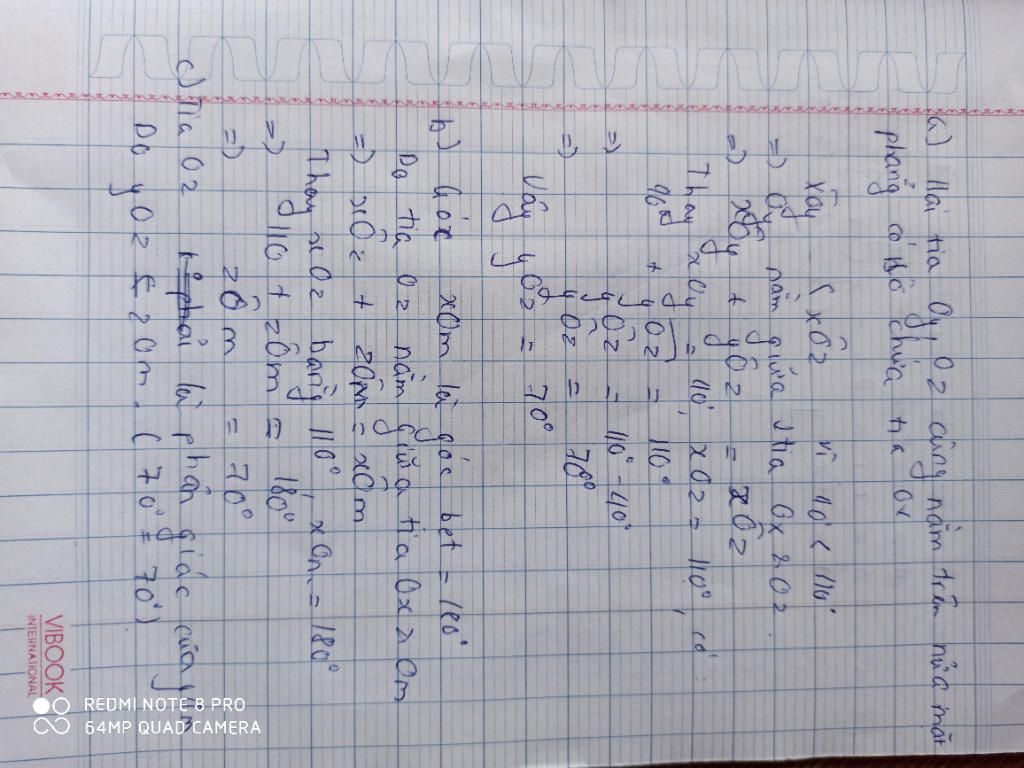 a) Hai tia Oy, Oz cùng nằm trên nửa mặt
phẳng có bờ chứa tia Ox
xÔy < xÔz vì 40° < 110°
=) Oy nằm giữa 2 tia Ox & Oz
=) xÔy + yÔz = xÔz
Thay xOy = 110°, xOz = 110°, có
+ yÔz = 110°
=) yÔz = 110° - 40°
=) yÔz = 70°
Vậy yÔz = 70°
b) Góc xOm là góc bẹt = 180°
Do tia Oz nằm giữa tia Ox & Om
=) xÔz + zÔm = xÔm
Thay xOz bằng 110°, xOm = 180°
=) 110 + zÔm = 180°
=) zÔm = 70°
c) Tia Oz là phân giác của yOm
Do yOz = zOm. (70° = 70°)
VIBOOK
INTERNATIONAL
REDMI NOTE 8 PRO
64MP QUAD CAMERA